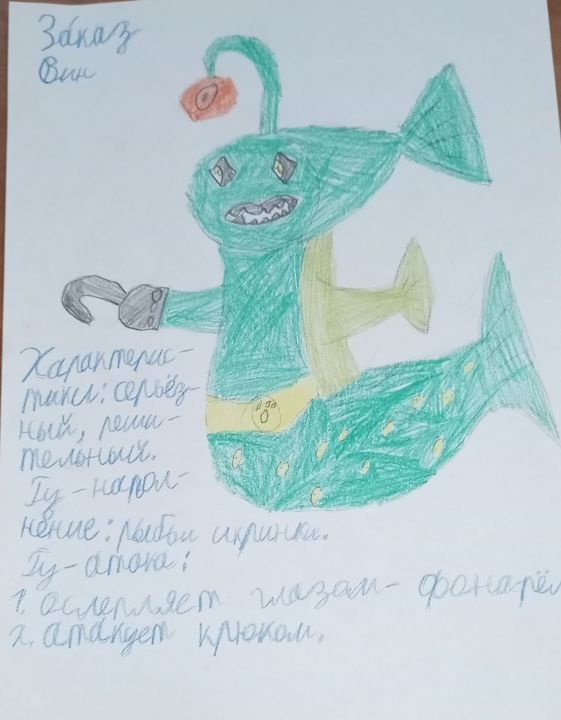 Зáказ
Вин
Характерис-
тики: серьёз-
ный, реши-
тельный.
Гу-напол-
нение: рыбьи икринки.
Гу-атака:
1. ослепляет глазом- фонарём
2. атакует крюком.